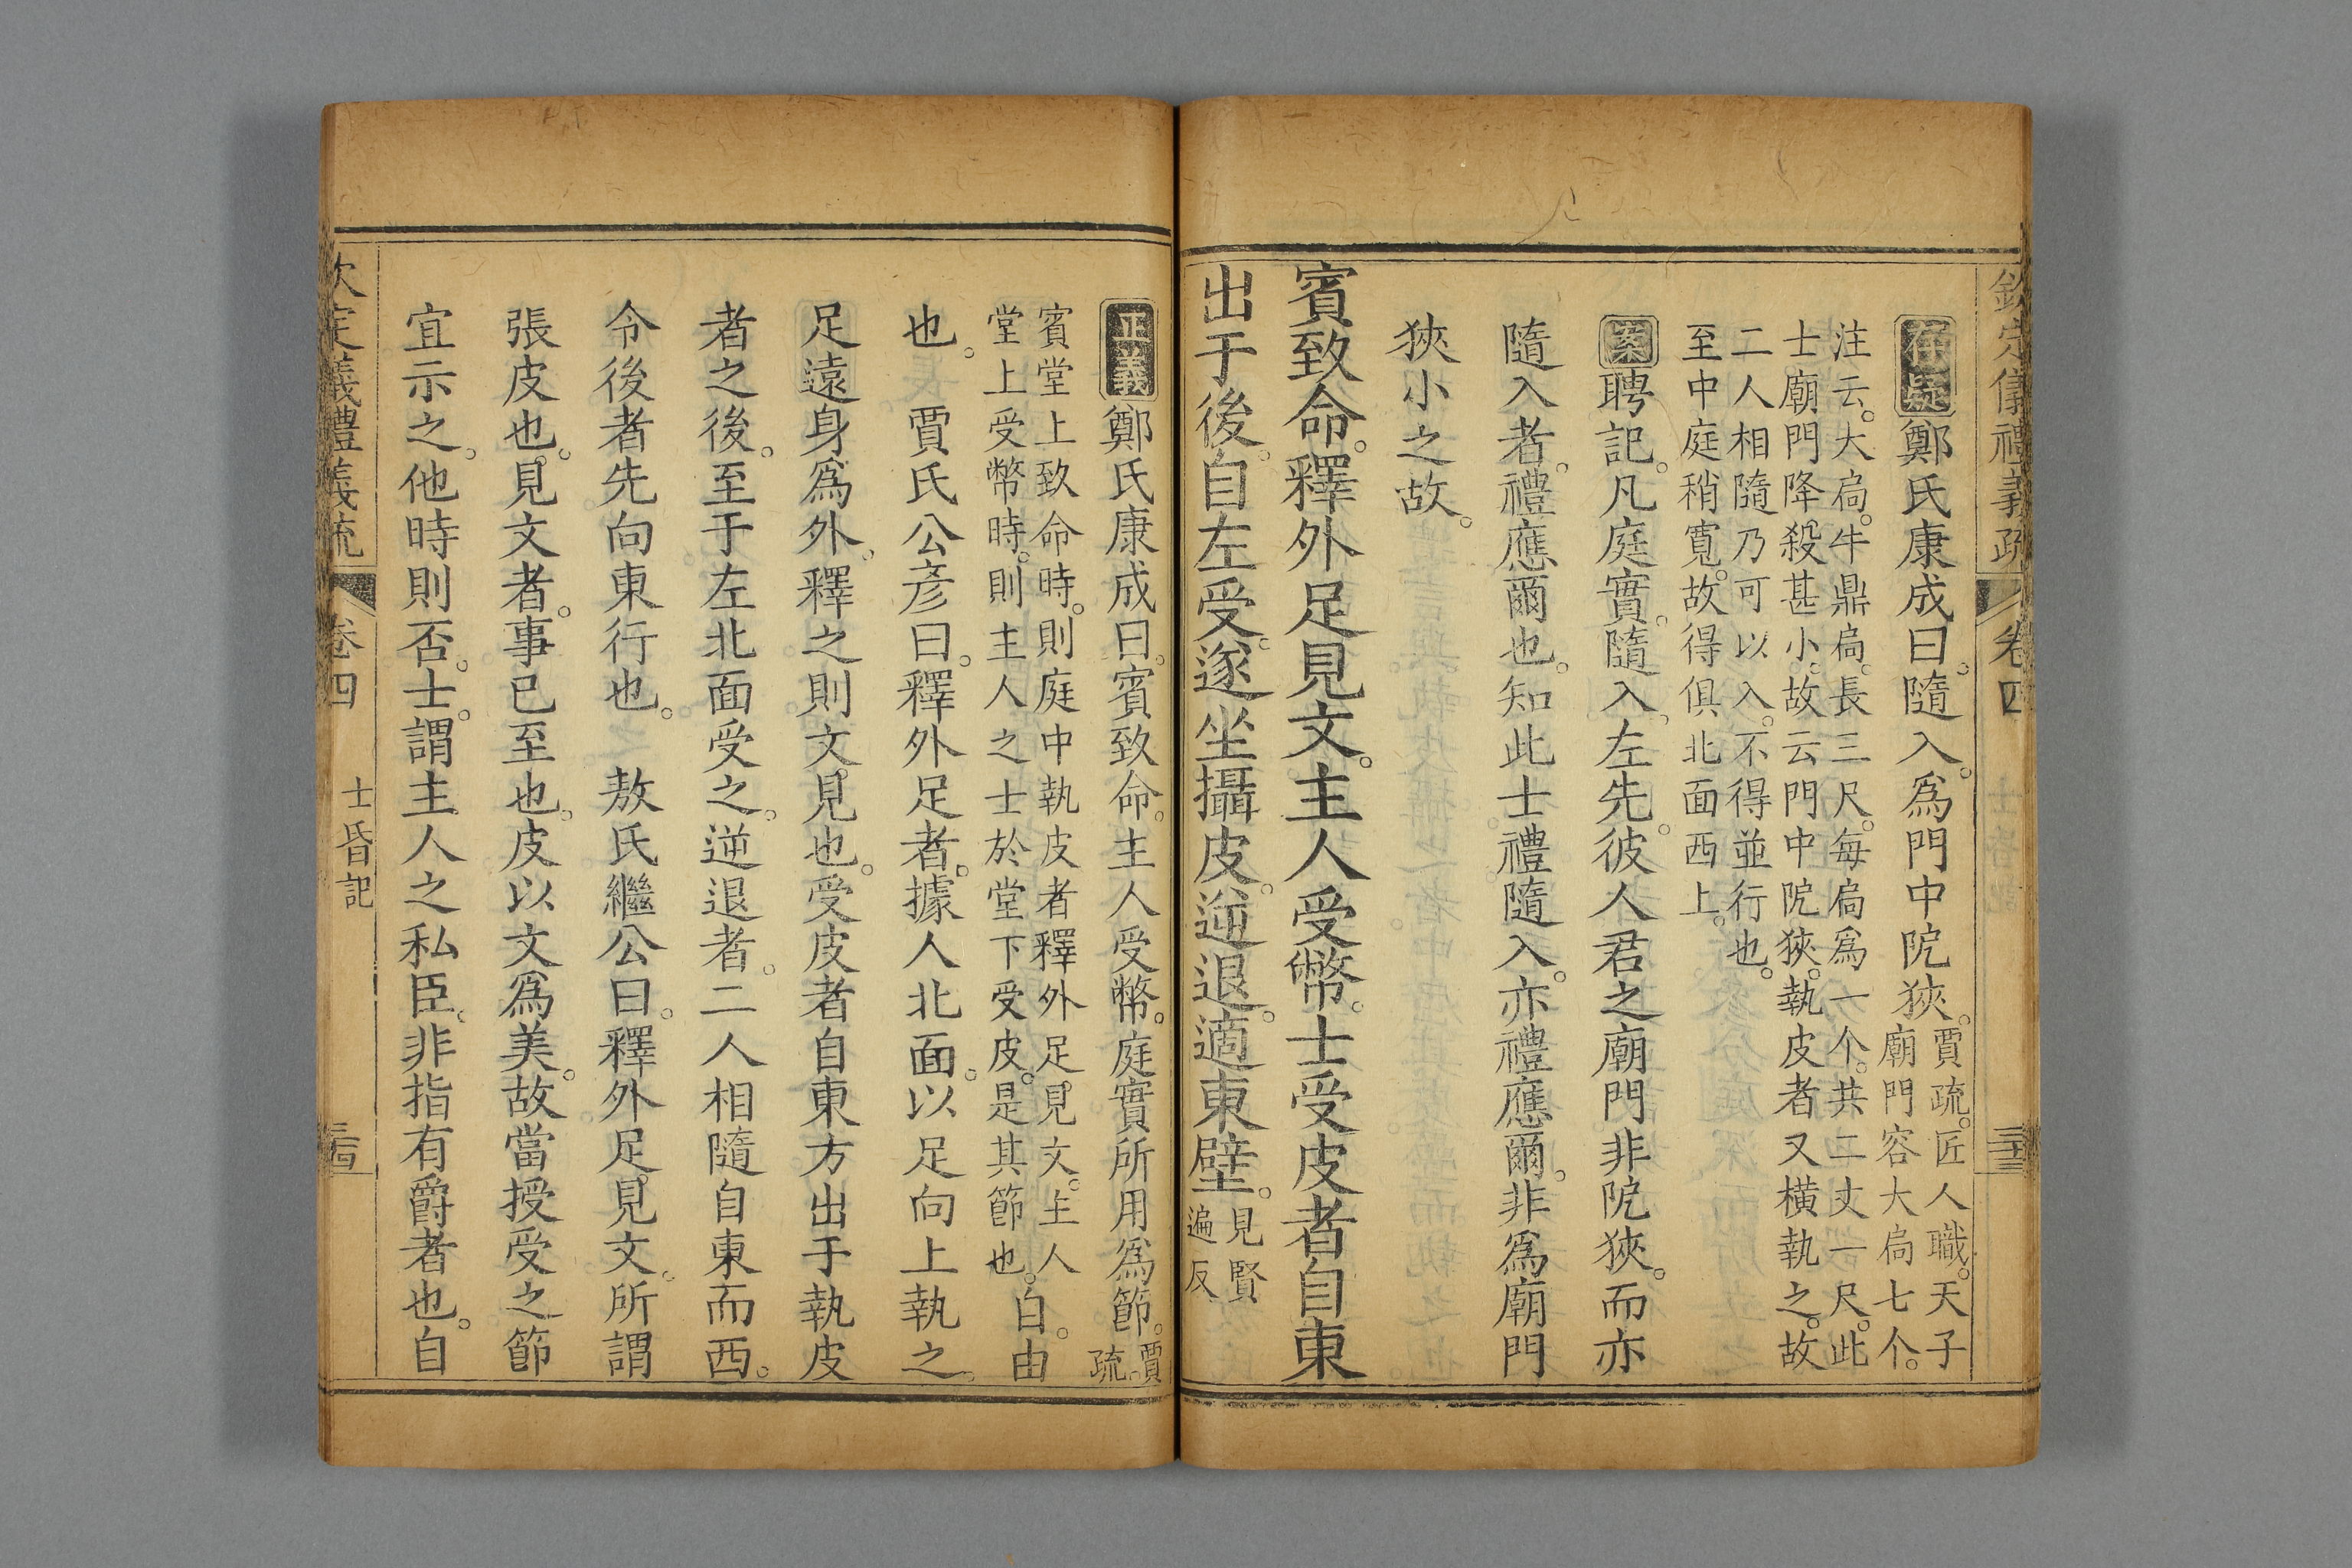 欽定儀禮義疏 卷四
存疑 鄭氏康成曰。隨入。爲門中阨狹。賈疏。匠人職。天子
廟門容大扃七个。
注云。大扃。牛鼎扃。長三尺。每扃爲一个。共二丈一尺。此
士廟門降殺甚小。故云門中阨狹。執皮者又橫執之。故
二人相隨乃可以入。不得並行也。
至中庭稍寬。故得俱北面西上。
案 聘記。凡庭實。隨入。左先。彼人君之廟門非阨狹。而亦
隨入者。禮應爾也。知此士禮隨入。亦禮應爾。非爲廟門
狹小之故。
賓致命。釋外足見文。主人受幣。士受皮者自東
出于後。自左受。遂坐攝皮。逆退。適東壁。見賢
遍反
正義 鄭氏康成曰。賓致命。主人受幣。庭實所用爲節。賈
疏。
賓堂上致命時。則庭中執皮者釋外足。見文。主人
堂上受幣時。則主人之士於堂下受皮。是其節也。自。由
也。 賈氏公彥曰。釋外足者。據人北面。以足向上執之。
足遠身爲外。釋之則文見也。受皮者自東方出于執皮
者之後。至于左北面受之。逆退者。二人相隨自東而西。
令後者先向東行也。 敖氏繼公曰。釋外足。見文。所謂
張皮也。見文者。事已至也。皮以文爲美。故當授受之節
宜示之。他時則否。士。謂主人之私臣。非指有爵者也。自
欽定儀禮義疏 卷四 士昏記